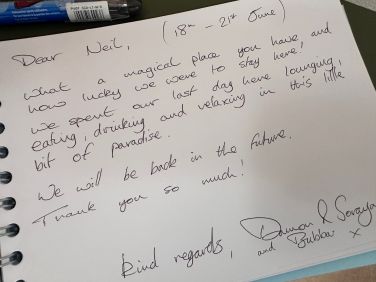 Dear Neil, (18th – 21st June)
What a magical place you have and
how lucky we were to stay here!
We spent our last day here lounging,
eating, drinking and relaxing in this little
bit of paradise.
We will be back in the future.
Thank you so much!
Kind regards, Damon & Soraya
and Bubba x